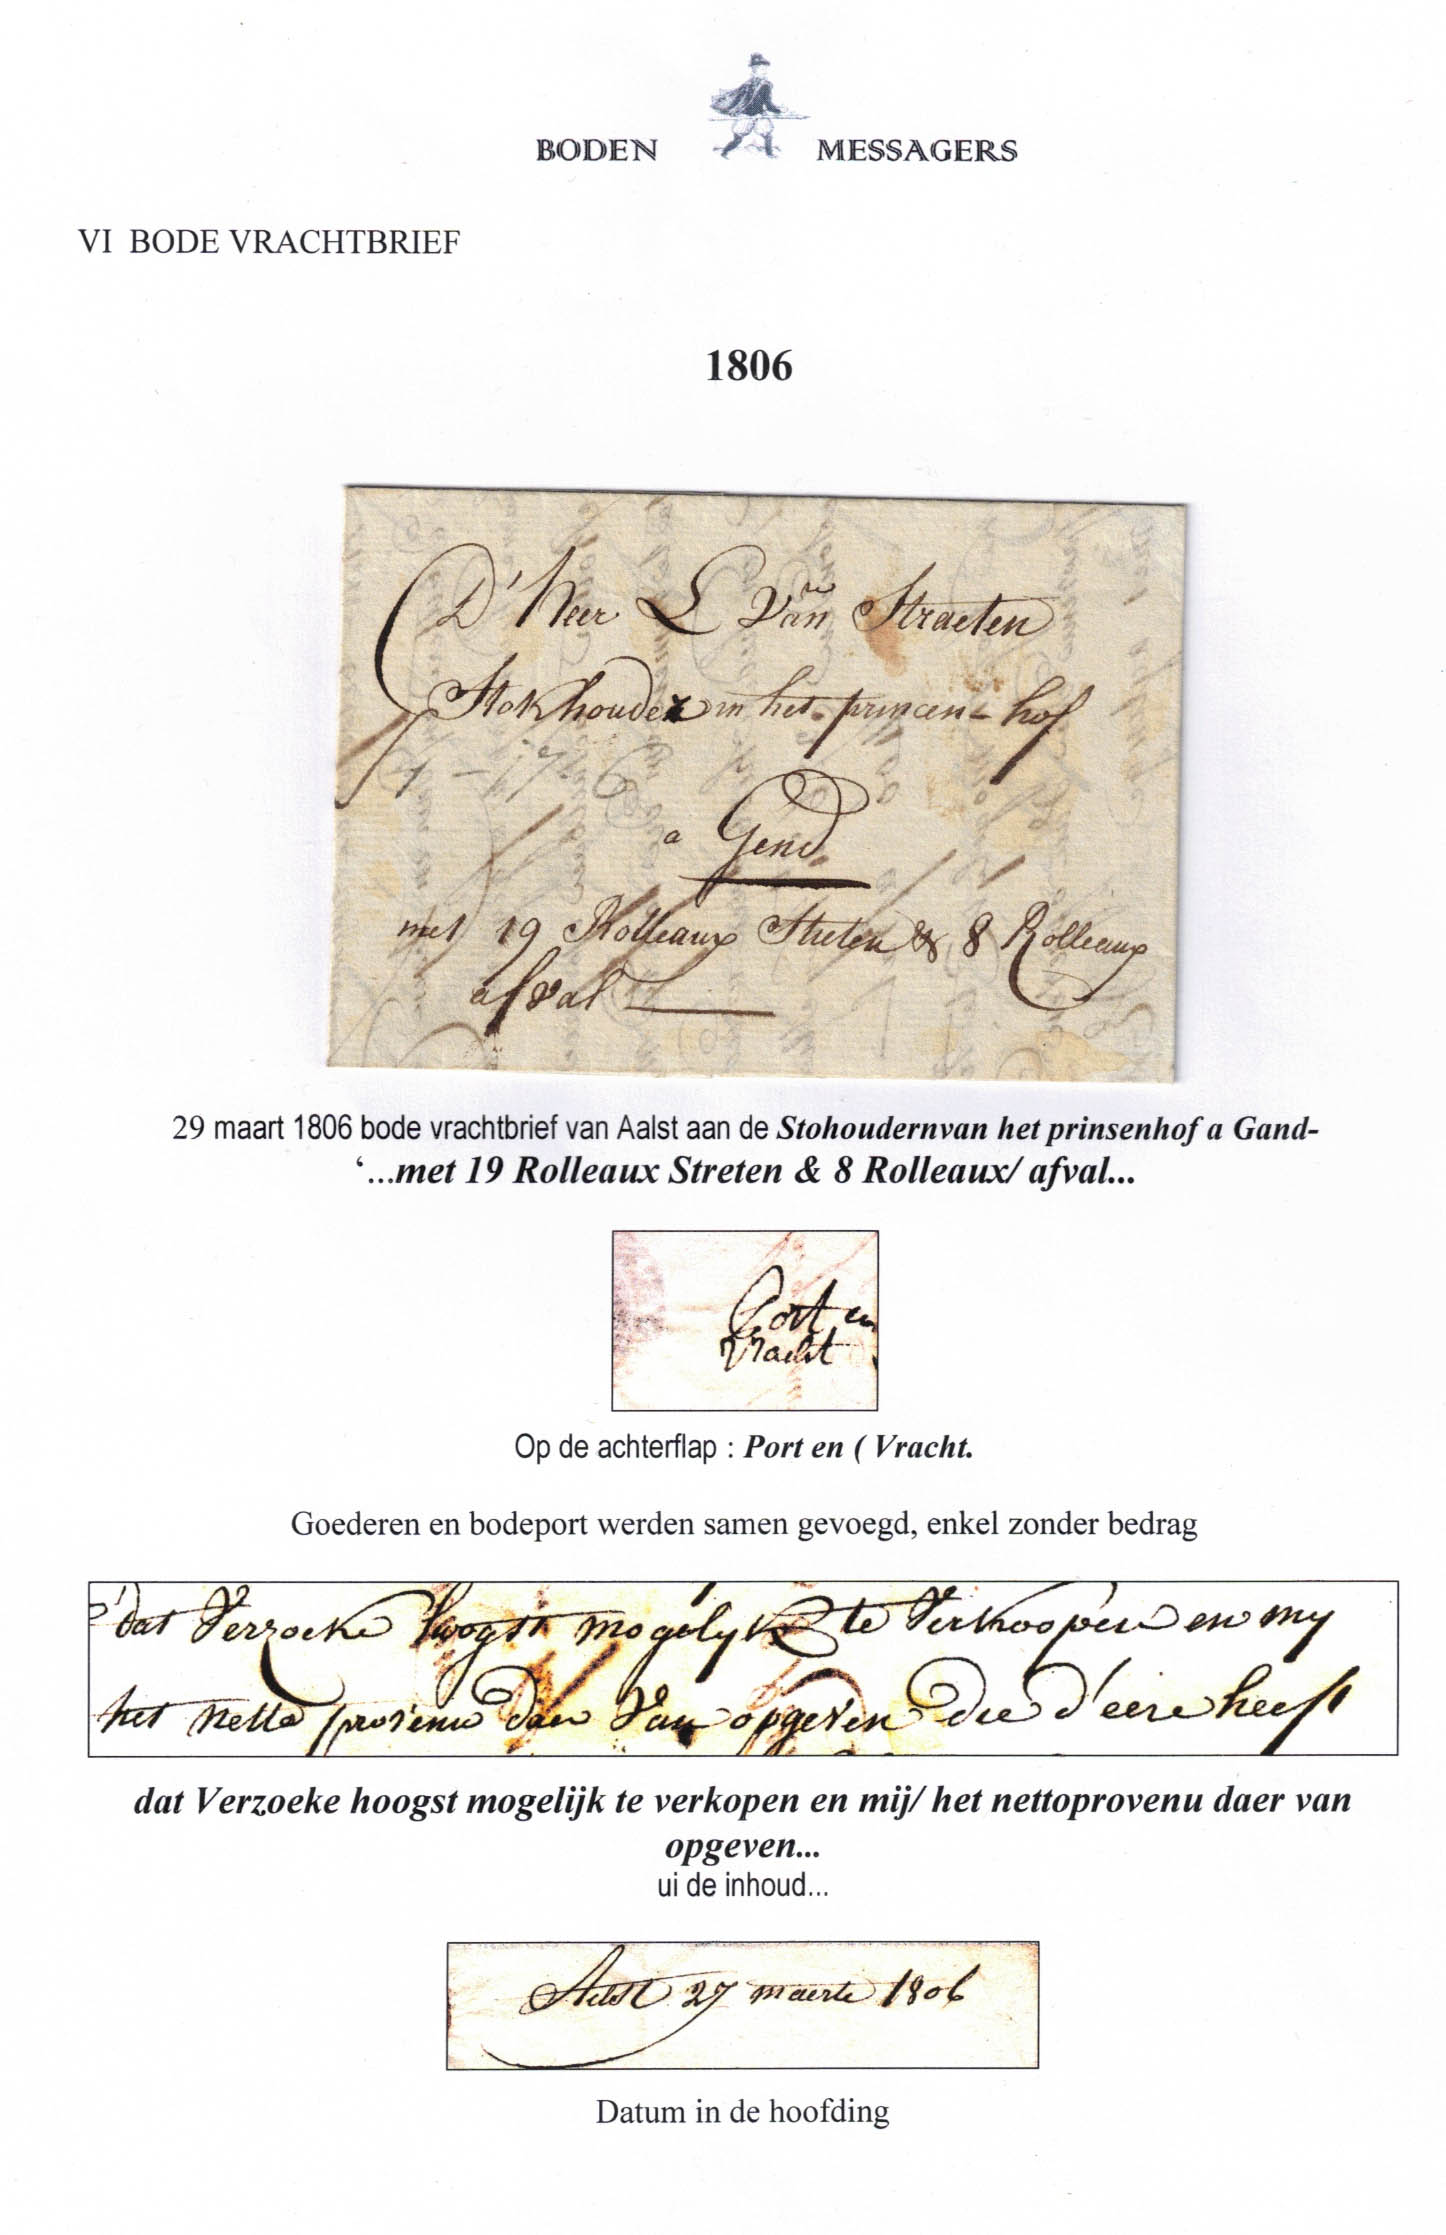 BODEN MESSAGERS
VI BODE VRACHTBRIEF
1806
D'heer L Van Straeten
Stokhouder in het princen-hof
a Gend
met 19 Rolleaux Streten & 8 Rolleaux
afval
29 maart 1806 bode vrachtbrief van Aalst aan de Stohoudernvan het prinsenhof a Gand-
‘...met 19 Rolleaux Streten & 8 Rolleaux/ afval...
Port en
Vracht
Op de achterflap : Port en ( Vracht.
Goederen en bodeport werden samen gevoegd, enkel zonder bedrag
dat Verzoeke hoogst mogelyk te Verkoopen en my
het netto provenu daer Van opgeven die d'eere heeft
dat Verzoeke hoogst mogelijk te verkopen en mij/ het nettoprovenu daer van
opgeven...
ui de inhoud...
Aelst 27 maerte 1806
Datum in de hoofding